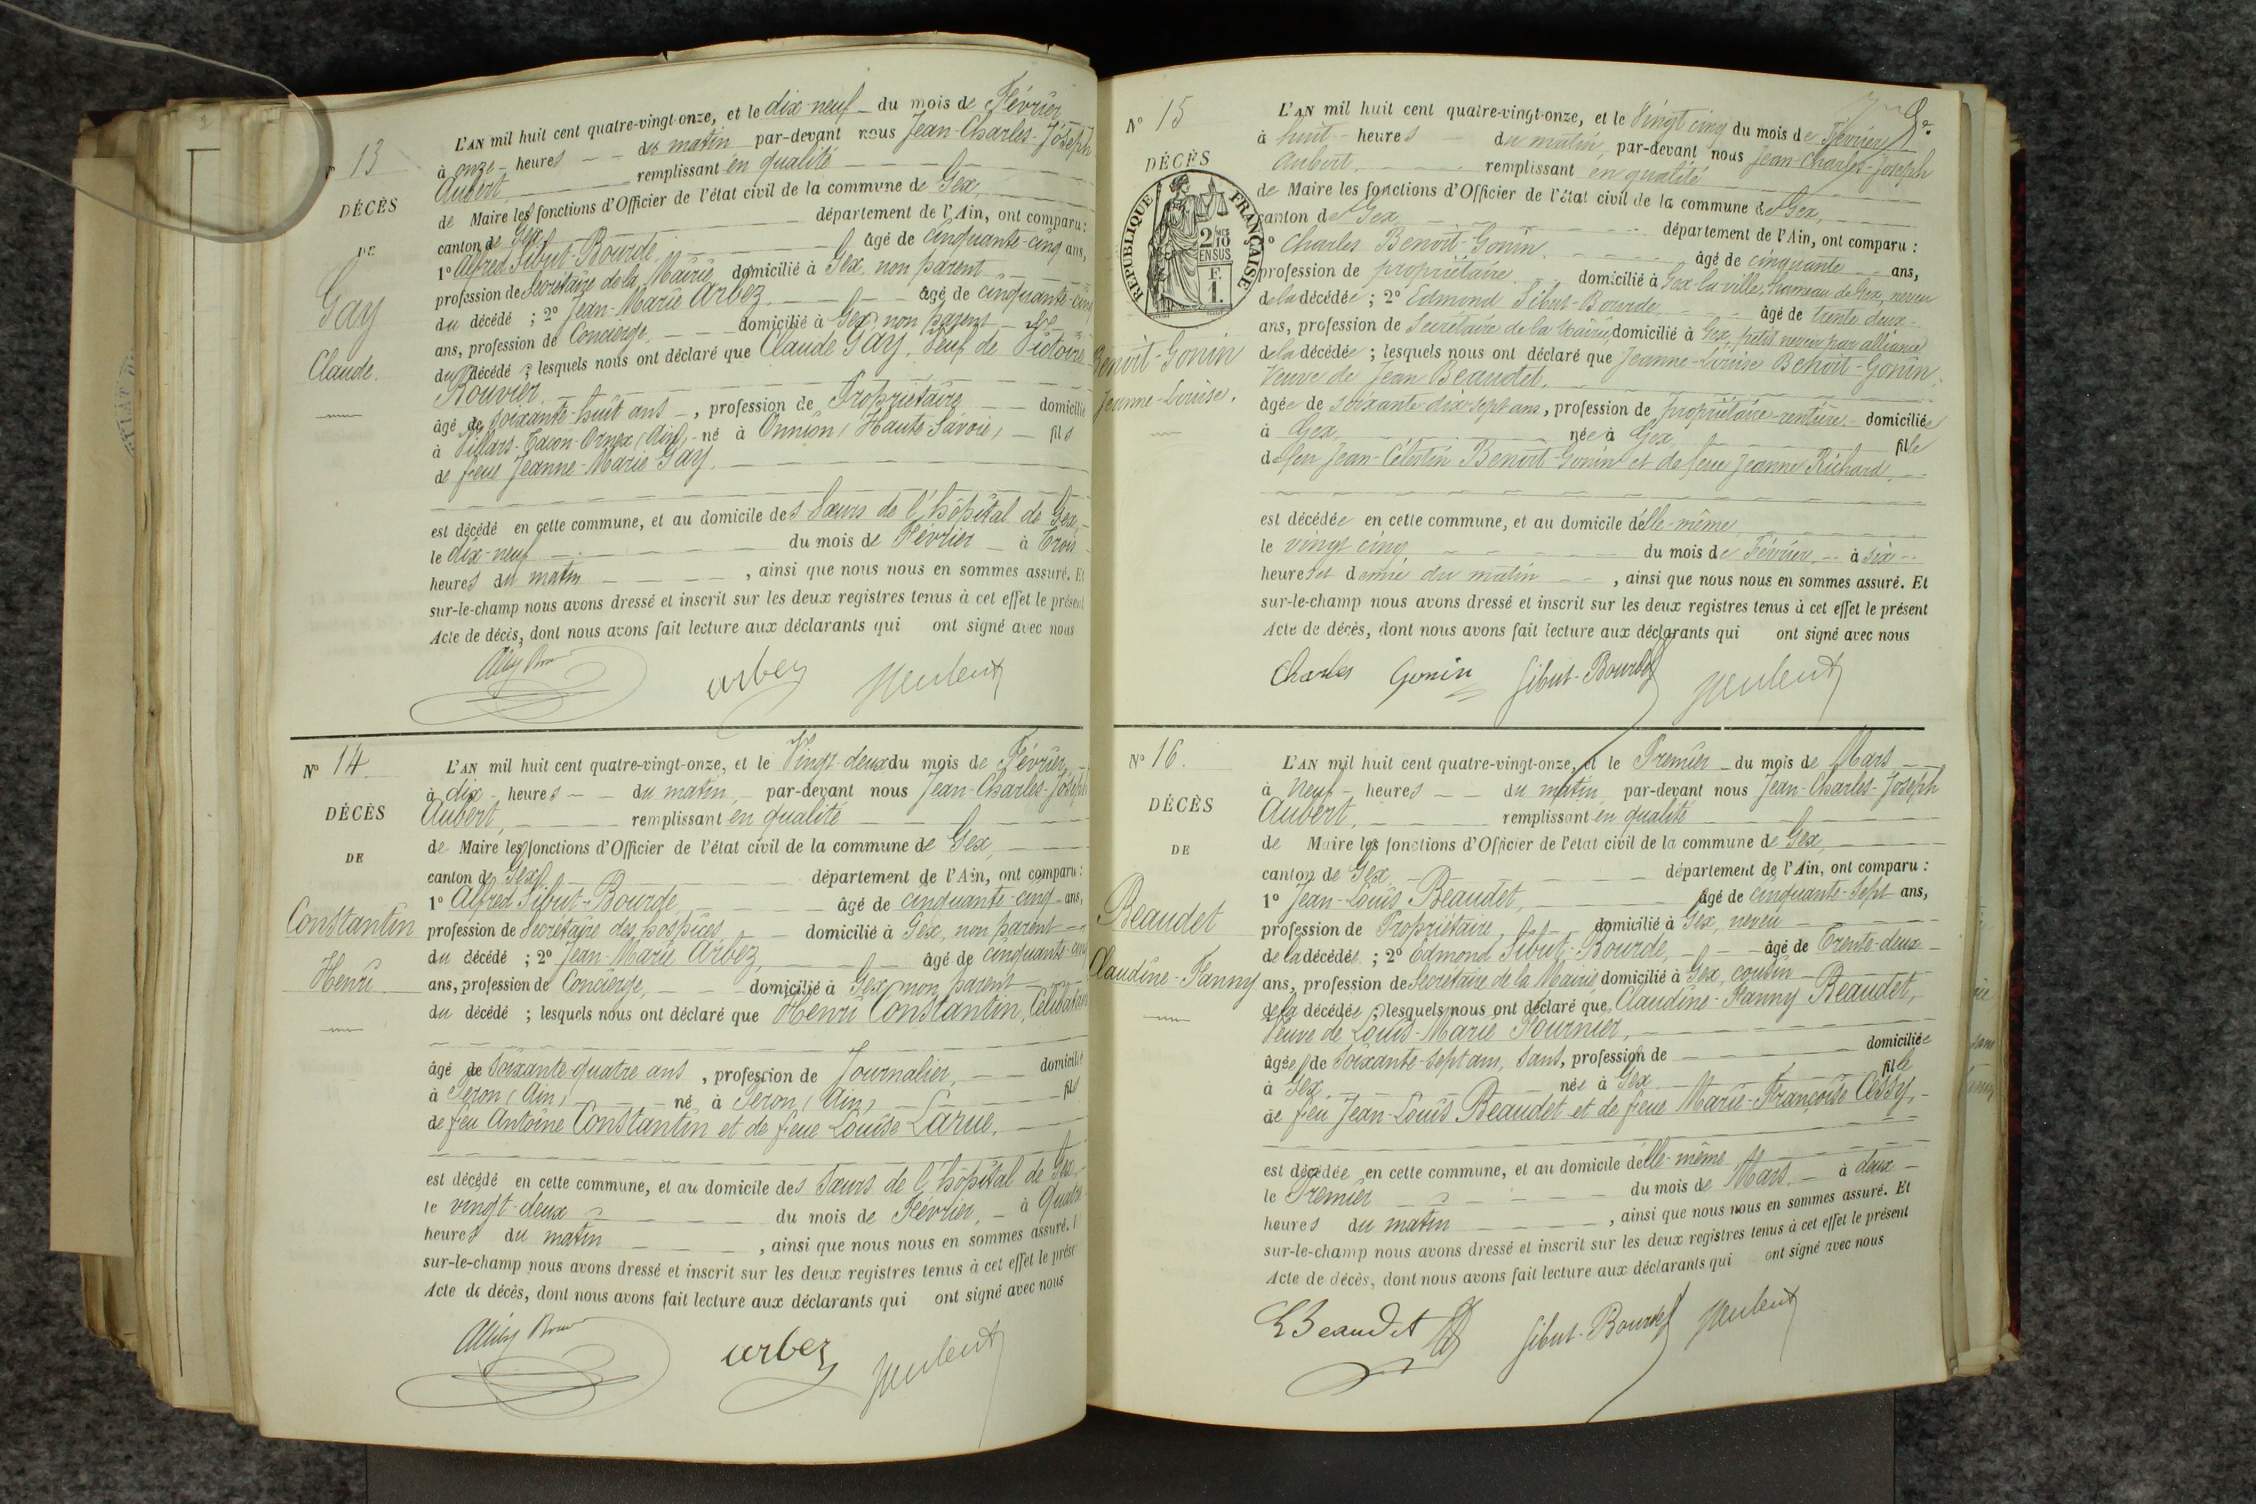 N° 13
DÉCÈS
DE
Gay
Claude.
L'AN mil huit cent quatre-vingt-onze, et le dix-neuf du mois de Février
à onze heures du matin par-devant nous Jean-Charles-Joseph
Aubert, remplissant en qualité
de Maire les fonctions d'Officier de l'état civil de la commune de Gex,
canton de Gex département de l'Ain, ont comparu :
1° Alfred Sibut-Bourde âgé de cinquante-cinq ans,
profession de Secrétaire de la Mairie domicilié à Gex, non parent
du décédé ; 2° Jean-Marie Arbez, âgé de cinquante-cinq
ans, profession de Concierge, domicilié à Gex, non parent
du décédé ; lesquels nous ont déclaré que Claude Gay, Veuf de Victoire
Bouvier,
âgé de soixante-huit ans, profession de Propriétaire domicilié
à Villars-Tacon-Ornex (Ain), né à Onnion (Haute Savoie) fils
de feue Jeanne-Marie Gay.
est décédé en cette commune, et au domicile des Sœurs de l'hôpital de Gex,
le dix-neuf du mois de Février à trois
heures du matin , ainsi que nous nous en sommes assuré. Et
sur-le-champ nous avons dressé et inscrit sur les deux registres tenus à cet effet le présent
Acte de décès, dont nous avons fait lecture aux déclarants qui ont signé avec nous
arbez
N° 14.
DÉCÈS
DE
Constantin
Henri
L'AN mil huit cent quatre-vingt-onze, et le Vingt deux du mois de Février,
à dix heures du matin, par-devant nous Jean-Charles-Joseph
Aubert, remplissant en qualité
de Maire les fonctions d'Officier de l'état civil de la commune de Gex,
canton de Gex département de l'Ain, ont comparu :
1° Alfred Sibut-Bourde âgé de cinquante-cinq ans,
profession de Secrétaire des hospices domicilié à Gex, non parent
du décédé ; 2° Jean-Marie Arbez, âgé de cinquante-cinq
ans, profession de Concierge, domicilié à Gex, non parent
du décédé ; lesquels nous ont déclaré que Henri Constantin, Célibataire
âgé de Soixante-quatre ans , profession de Journalier, domicilié
à Péron (Ain) né à Péron (Ain) fils
de feu Antoine Constantin et de feue Louise Larue.
est décédé en cette commune, et au domicile des Sœurs de l'hôpital de Gex,
le vingt-deux du mois de Février, à Quatre
heures du matin , ainsi que nous nous en sommes assuré. E
sur-le-champ nous avons dressé et inscrit sur les deux registres tenus à cet effet le prése
Acte de décès, dont nous avons fait lecture aux déclarants qui ont signé avec nous
arbez
N° 15
DÉCÈS
RÉPUBLIQUE FRANÇAISE
2/10
EN SUS
F.
1.
Benoît-Gonin
Jeanne-Louise.
L'AN mil huit cent quatre-vingt-onze, et le Vingt cinq du mois de Février
à huit heures du matin, par-devant nous Jean-Charles-Joseph
Aubert remplissant en qualité
de Maire les fonctions d'Officier de l'état civil de la commune de Gex,
canton de Gex département de l'Ain, ont comparu :
1° Charles Benoît-Gonin, âgé de cinquante ans,
profession de propriétaire domicilié à Gex-la-ville, hameau de Gex, neveu
de la décédée ; 2° Edmond Sibut-Bourde, âgé de trente deux
ans, profession de Secrétaire de la Mairie, domicilié à Gex, petit neveu par alliance
de la décédée ; lesquels nous ont déclaré que Jeanne-Louise Benoît-Gonin,
Veuve de Jean Beaudet,
âgée de soixante dix sept ans, profession de propriétaire-rentière domiciliée
à Gex, née à Gex fille
de feu Jean-Célestin Benoît-Gonin et de feue Jeanne Richard,
est décédée en cette commune, et au domicile d'elle-même
le vingt cinq du mois de Février à six
heures et demie du matin , ainsi que nous nous en sommes assuré. Et
sur-le-champ nous avons dressé et inscrit sur les deux registres tenus à cet effet le présent
Acte de décès, dont nous avons fait lecture aux déclarants qui ont signé avec nous
Charles Gonin Sibut-Bourde
N° 16.
DÉCÈS
DE
Beaudet
Claudine-Fanny
L'AN mil huit cent quatre-vingt-onze, et le Premier du mois de Mars
à Neuf heures du matin, par-devant nous Jean-Charles-Joseph
Aubert, remplissant en qualité
de Maire les fonctions d'Officier de l'état civil de la commune de Gex,
canton de Gex département de l'Ain, ont comparu :
1° Jean-Louis Beaudet, âgé de cinquante-sept ans,
profession de Propriétaire domicilié à Gex, neveu
de la décédée ; 2° Edmond Sibut-Bourde, âgé de Trente-deux
ans, profession de Secrétaire de la Mairie, domicilié à Gex, cousin
de la décédée ; lesquels nous ont déclaré que Claudine-Fanny Beaudet,
Veuve de Louis-Marie Fournier,
âgée de Soixante-sept ans, sans, profession de domiciliée
à Gex, née à Gex fille
de feu Jean-Louis Beaudet et de feue Marie-Françoise Cessy,
est décédée en cette commune, et au domicile d'elle-même
le Premier du mois de Mars à deux
heures du matin , ainsi que nous nous en sommes assuré. Et
sur-le-champ nous avons dressé et inscrit sur les deux registres tenus à cet effet le présent
Acte de décès, dont nous avons fait lecture aux déclarants qui ont signé avec nous
L Beaudet Sibut-Bourde